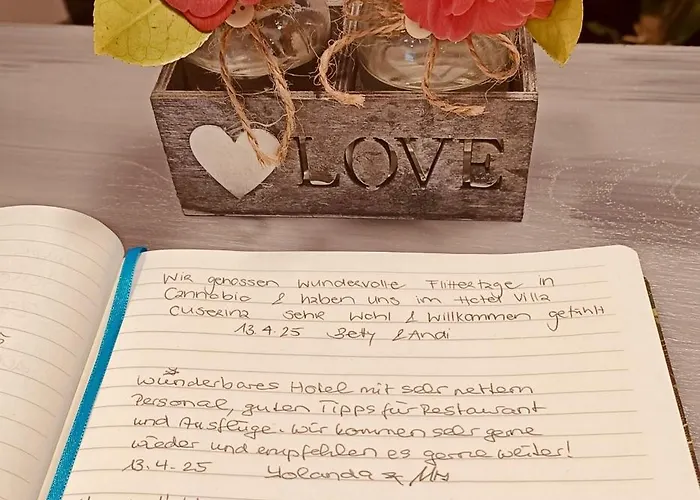 LOVE
Wir genossen wundervolle Flittertage in
Cannobio & haben uns im Hotel Villa
Custerina sehr wohl & willkommen gefühlt
13.4.25 Betty & Andi
Wünderbares Hotel mit sehr nettem
Personal, guten Tipps für Restaurant
und Ausflüge. Wir kommen sehr gerne
wieder und empfehlen es gerne weiter!
13.4.25 Yolanda &